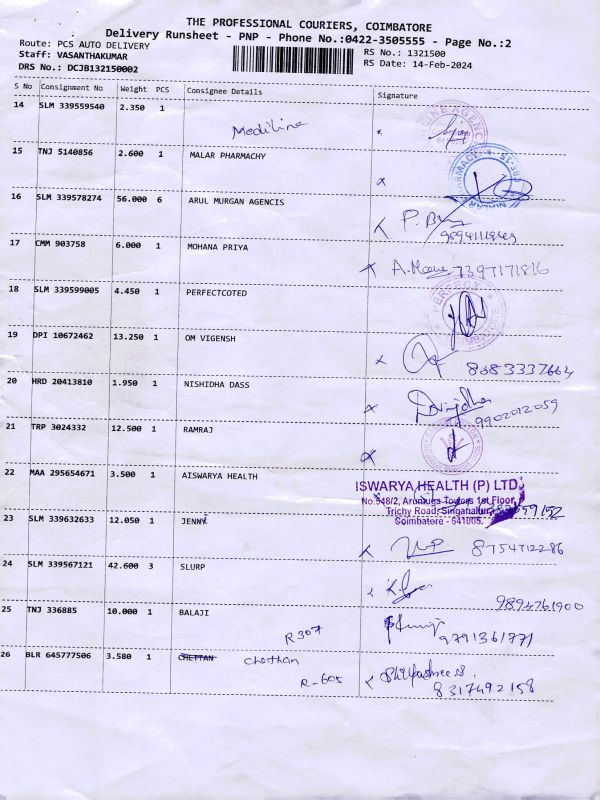 THE PROFESSIONAL COURIERS, COIMBATORE
Delivery Runsheet - PNP - Phone No.:0422-3505555 - Page No.:2
Route: PCS AUTO DELIVERY RS No.: 1321500
Staff: VASANTHAKUMAR RS Date: 14-Feb-2024
DRS No.: DCJB132150002
S No Consignment No Weight PCS Consignee Details Signature
14 SLM 339559540 2.350 1
Mediline
15 TNJ 5140856 2.600 1 MALAR PHARMACHY
16 SLM 339578274 56.000 6 ARUL MURGAN AGENCIS
17 CMM 903758 6.000 1 MOHANA PRIYA
7397171816
18 SLM 339599005 4.450 1 PERFECTCOTED
19 DPI 10672462 13.250 1 OM VIGENSH
8883337664
20 HRD 20413810 1.950 1 NISHIDHA DASS
9902012059
21 TRP 3024332 12.500 1 RAMRAJ
22 MAA 295654671 3.500 1 AISWARYA HEALTH
ISWARYA HEALTH (P) LTD.
No.948/2, Arumuga Towers 1st Floor,
Trichy Road, Singanallur,
Coimbatore - 641005.
23 SLM 339632633 12.050 1 JENNY
8754712286
24 SLM 339567121 42.600 3 SLURP
9894761900
25 TNJ 336885 10.000 1 BALAJI
R307 9791361771
26 BLR 645777506 3.580 1 CHETTAN Chethan
R-605 8317492158